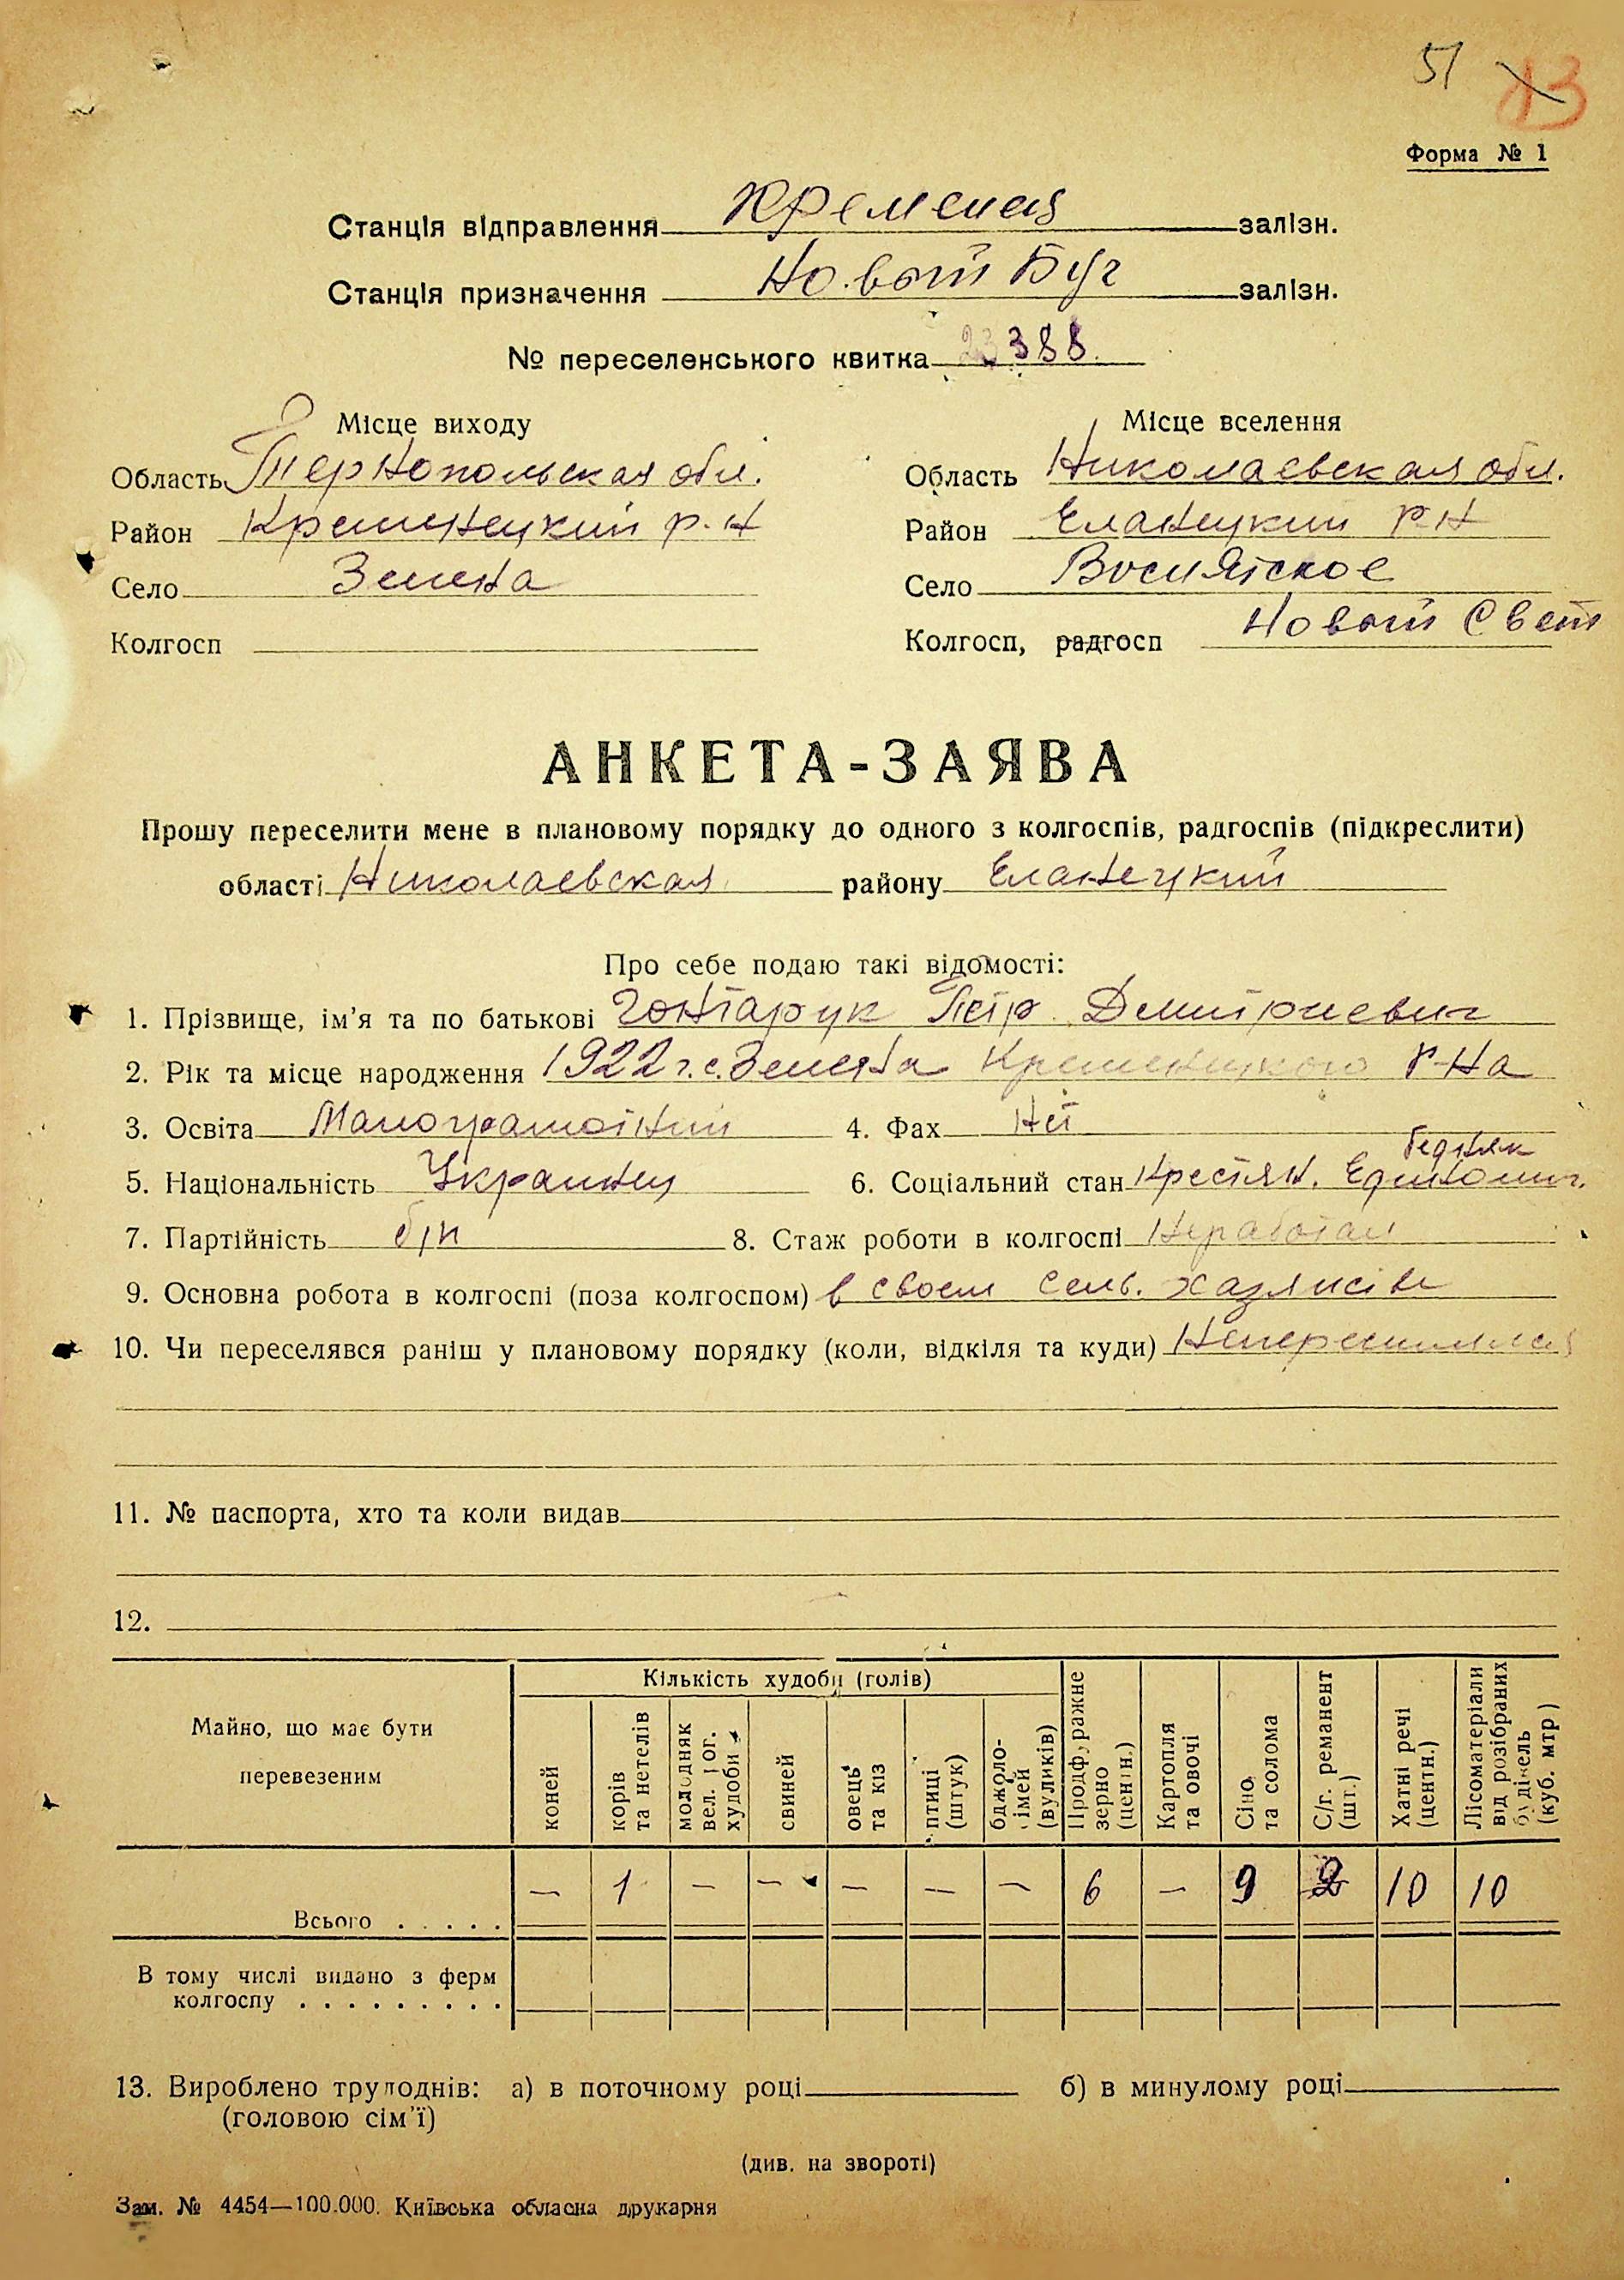 51 13
Форма № 1
Станція відправлення Кременец залізн.
Станція призначення Новый Буг залізн.
№ переселенського квитка 23388.
Місце виходу
Область Тернопольская обл.
Район Кременецкий р-н
Село Зелена
Колгосп
Місце вселення
Область Николаевская обл.
Район Еланецкий р-н
Село Восиятское
Колгосп, радгосп Новый Свет
АНКЕТА-ЗАЯВА
Прошу переселити мене в плановому порядку до одного з колгоспів, радгоспів (підкреслити)
області Николаевская району Еланецкий
Про себе подаю такі відомості:
1. Прізвище, ім’я та по батькові Гонтарук Петр Дмитриевич
2. Рік та місце народження 1922 г. с. Зелена Кременецкого р-на
3. Освіта Малограмотный 4. Фах нет
5. Національність Украинец 6. Соціальний стан Крестян. Единолич. бедняк
7. Партійність б/п 8. Стаж роботи в колгоспі Неработал
9. Основна робота в колгоспі (поза колгоспом) в своем сель. хазяистве
10. Чи переселявся раніш у плановому порядку (коли, відкіля та куди) Непереселялся
11. № паспорта, хто та коли видав
12.
Майно, що має бути перевезеним
Кількість худоби (голів)
коней
корів та нетелів
молодняк вел. рог. худоби
свиней
овець та кіз
птиці (штук)
бджоло-сімей (вуликів)
Продфуражне зерно (центн.)
Картопля та овочі
Сіно та солома
С/г. реманент (шт.)
Хатні речі (центн.)
Лісоматеріали від розібраних будівель (куб. мтр)
Всього . . . . . — 1 — — — — — 6 — 9 2 10 10
В тому числі видано з ферм
колгоспу . . . . . . . . .
13. Вироблено трудоднів: а) в поточному році б) в минулому році
(головою сім’ї)
(див. на звороті)
Зам. № 4454—100.000. Київська обласна друкарня